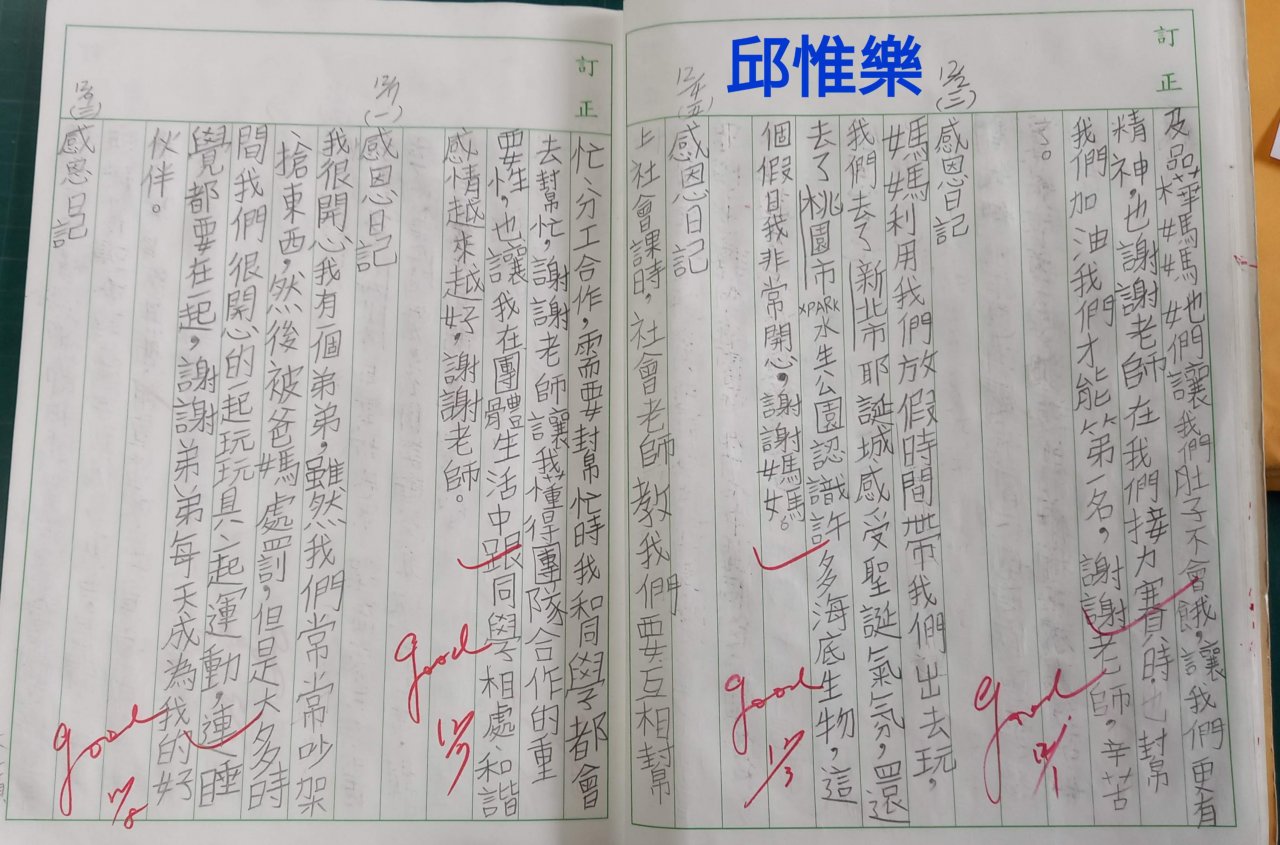 邱惟樂
訂正
及品樺媽媽她們讓我們肚子不會餓，讓我們更有
精神，也謝謝老師在我們接力賽時，也幫
我們加油我們才能第一名，謝謝老師，辛苦
了。
12/2(三)
感恩日記
媽媽利用我們放假時間帶我們出去玩，
我們去了新北市耶誕城感受聖誕氣氛，還
去了桃園市XPARK水生公園認識許多海底生物，這
個假日我非常開心，謝謝媽媽。
12/4(五)
感恩日記
上社會課時，社會老師教我們要互相幫
good 12/1
good 12/3
訂正
忙、分工合作，需要幫忙時我和同學都會
去幫忙，謝謝老師讓我懂得團隊合作的重
要性，也讓我在團體生活中跟同學相處和諧
感情越來越好，謝謝老師。
12/7(一)
感恩日記
我很開心我有一個弟弟，雖然我們常常吵架
搶東西，然後被爸媽處罰，但是大多時
間我們很開心的一起玩玩具、一起運動，連睡
覺都要在一起，謝謝弟弟每天成為我的好
伙伴。
感恩日記
good 12/7
good 12/8